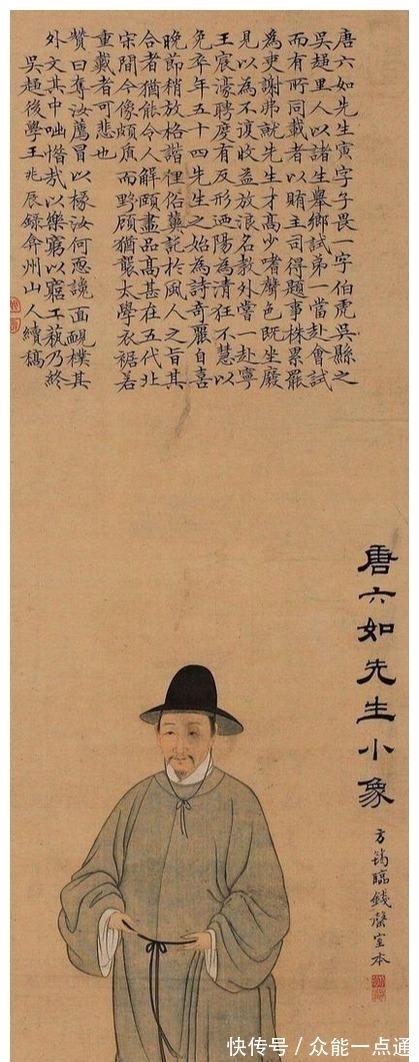 唐六如先生寅字子畏一字伯虎吳縣之
吳趨里人以諸生舉鄉試第一當赴會試
而有所同載者以賄主司得題事株累罷
為吏謝弗就先生才高少嗜聲色既坐廢
見以為不復收益放浪名教外嘗一赴寧
王宸濠聘度有反形迺陽為清狂不慧以
免卒年五十四先生之始為詩奇麗自喜
晚節稍放格諧俚俗冀託於風人之旨其
合者猶能令人解頤畫品高甚在五代北
宋間今像頗魚而野顧猶襲太學衣裾若
重載者可悲也
贊曰奪汝薦冒以椓汝何惡讒面樸其
外文其中咄惜哉以樂窮以窮工萟乃終
吳趨後學王兆辰錄弇州山人續稿
唐六如先生小象
方筠臨錢罄室本
快传号/众能一点通